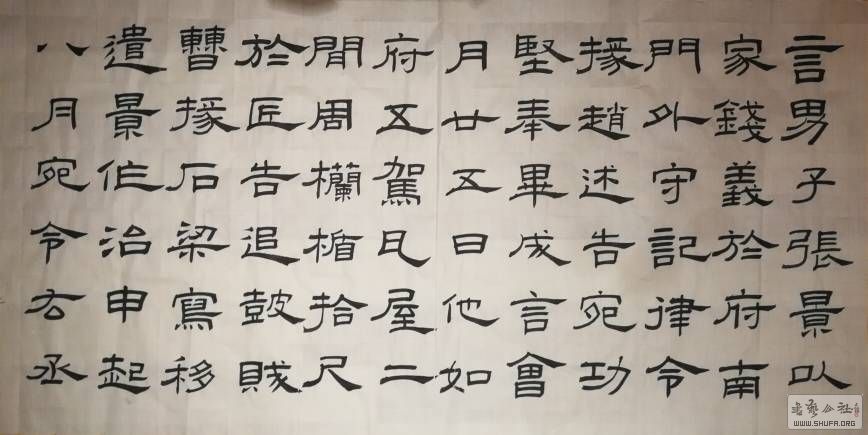 言男子張景以
家錢義於府南
門外守記律令
掾趙述告宛功
堅奉畢成言會
月廿五日他如
府五駕瓦屋二
閒周欄楯拾尺
於匠告追鼓賊
曹掾石梁寫移
遣景作治申起
八月宛令右丞
書藝公社
WWW.SHUFA.ORG